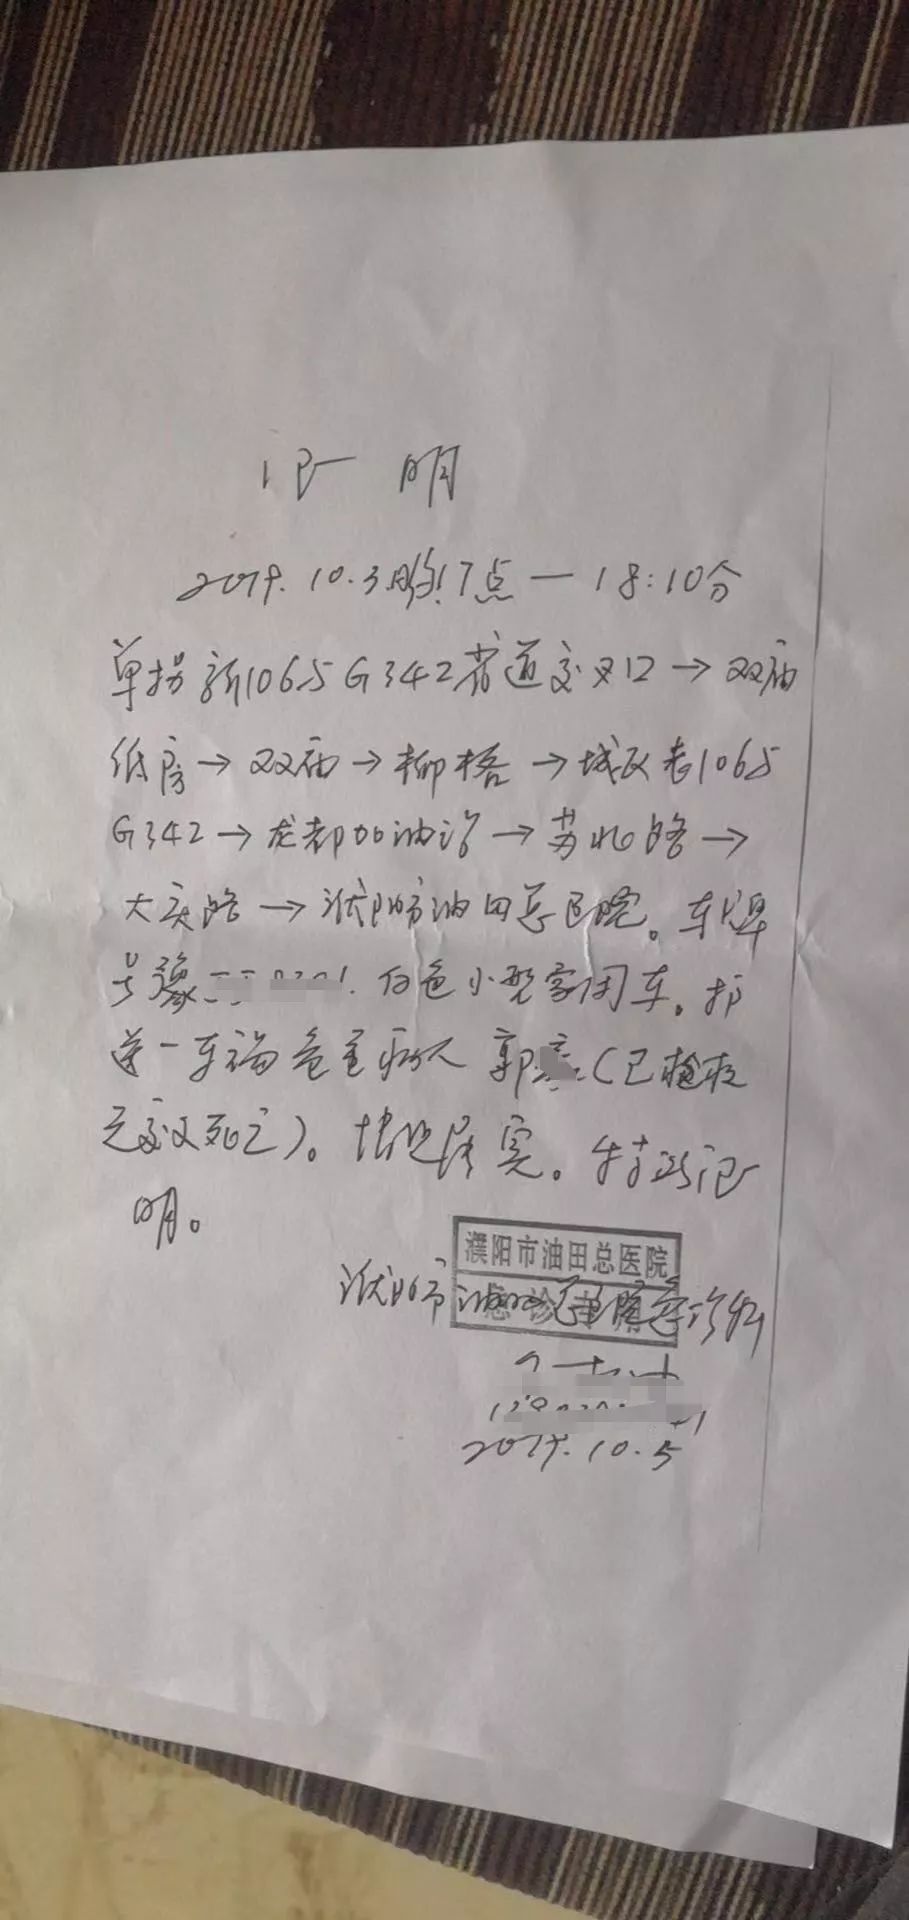 证明
2019.10.3日约17点—18:10分
单拐新106与G342省道交叉口→双庙
纸房→双庙→柳格→城区老106与
G342→龙都加油站→苏北路→
大庆路→濮阳市油田总医院。车牌
号豫 白色小型家用车。护
送一车祸危重病人郭（已抢救
无效死亡）。情况属实。特此证
明。
濮阳市油田总医院
濮阳市油田总医院急诊科
2019.10.5